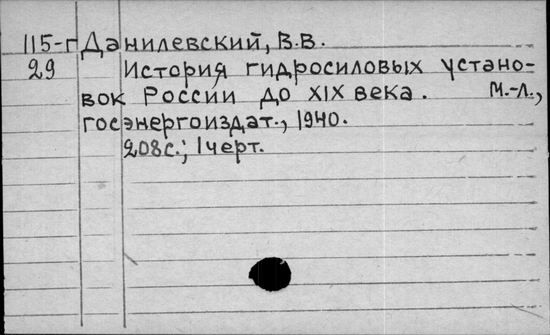 115-г Данилевский, В.В.
29 История гидросиловых устано-
вок России до XIX века. М.-Л.,
госэнергоиздат., 1940.
208с.; 1 черт.